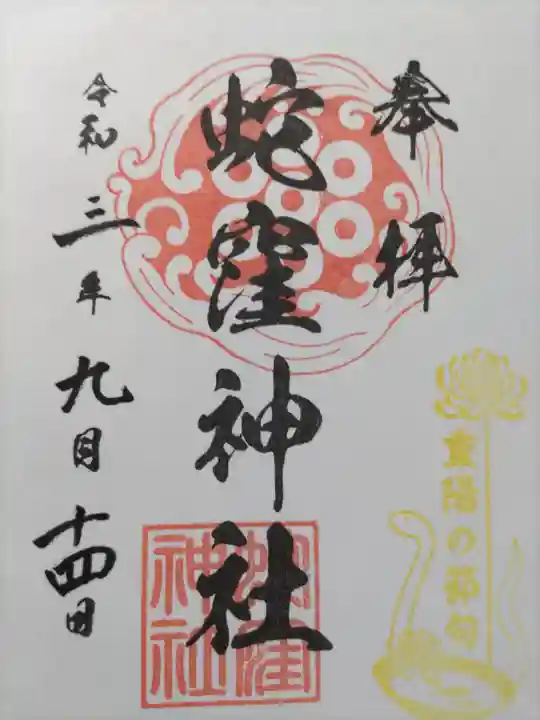 奉拝
蛇窪神社
令和三年九月十四日
重陽の節句
蛇窪神社